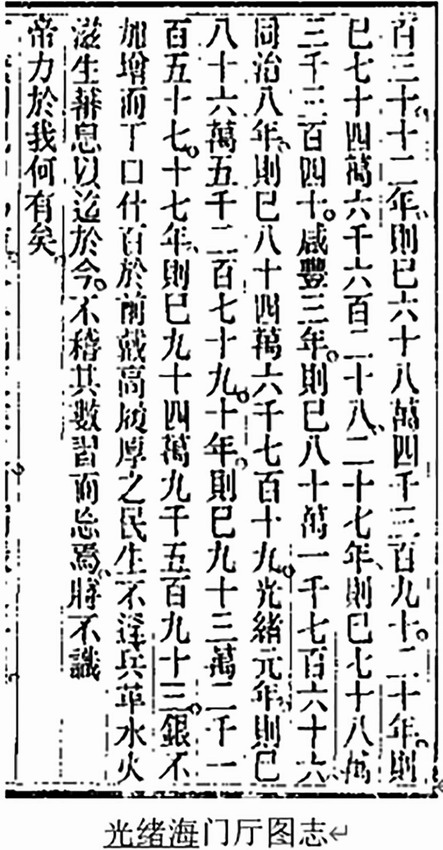 百三十、十二年、則已六十八萬四千三百九十。二十年、則
已七十四萬六千六百二十八、二十七年、則已七十八萬
三千三百四十。咸豐三年。則已八十萬一千七百六十六
同治八年、則已八十四萬六千七百十九。光緒元年、則已
八十六萬五千二百七十九。十年。則已九十三萬二千一
百五十七。十七年、則已九十四萬九千五百九十三。銀不
加增而丁口什百於前戴高履厚之民生不逢兵革水火
滋生蕃息以迄於今。不稽其數習而忘焉、將不識
帝力於我何有矣。
光绪海门厅图志